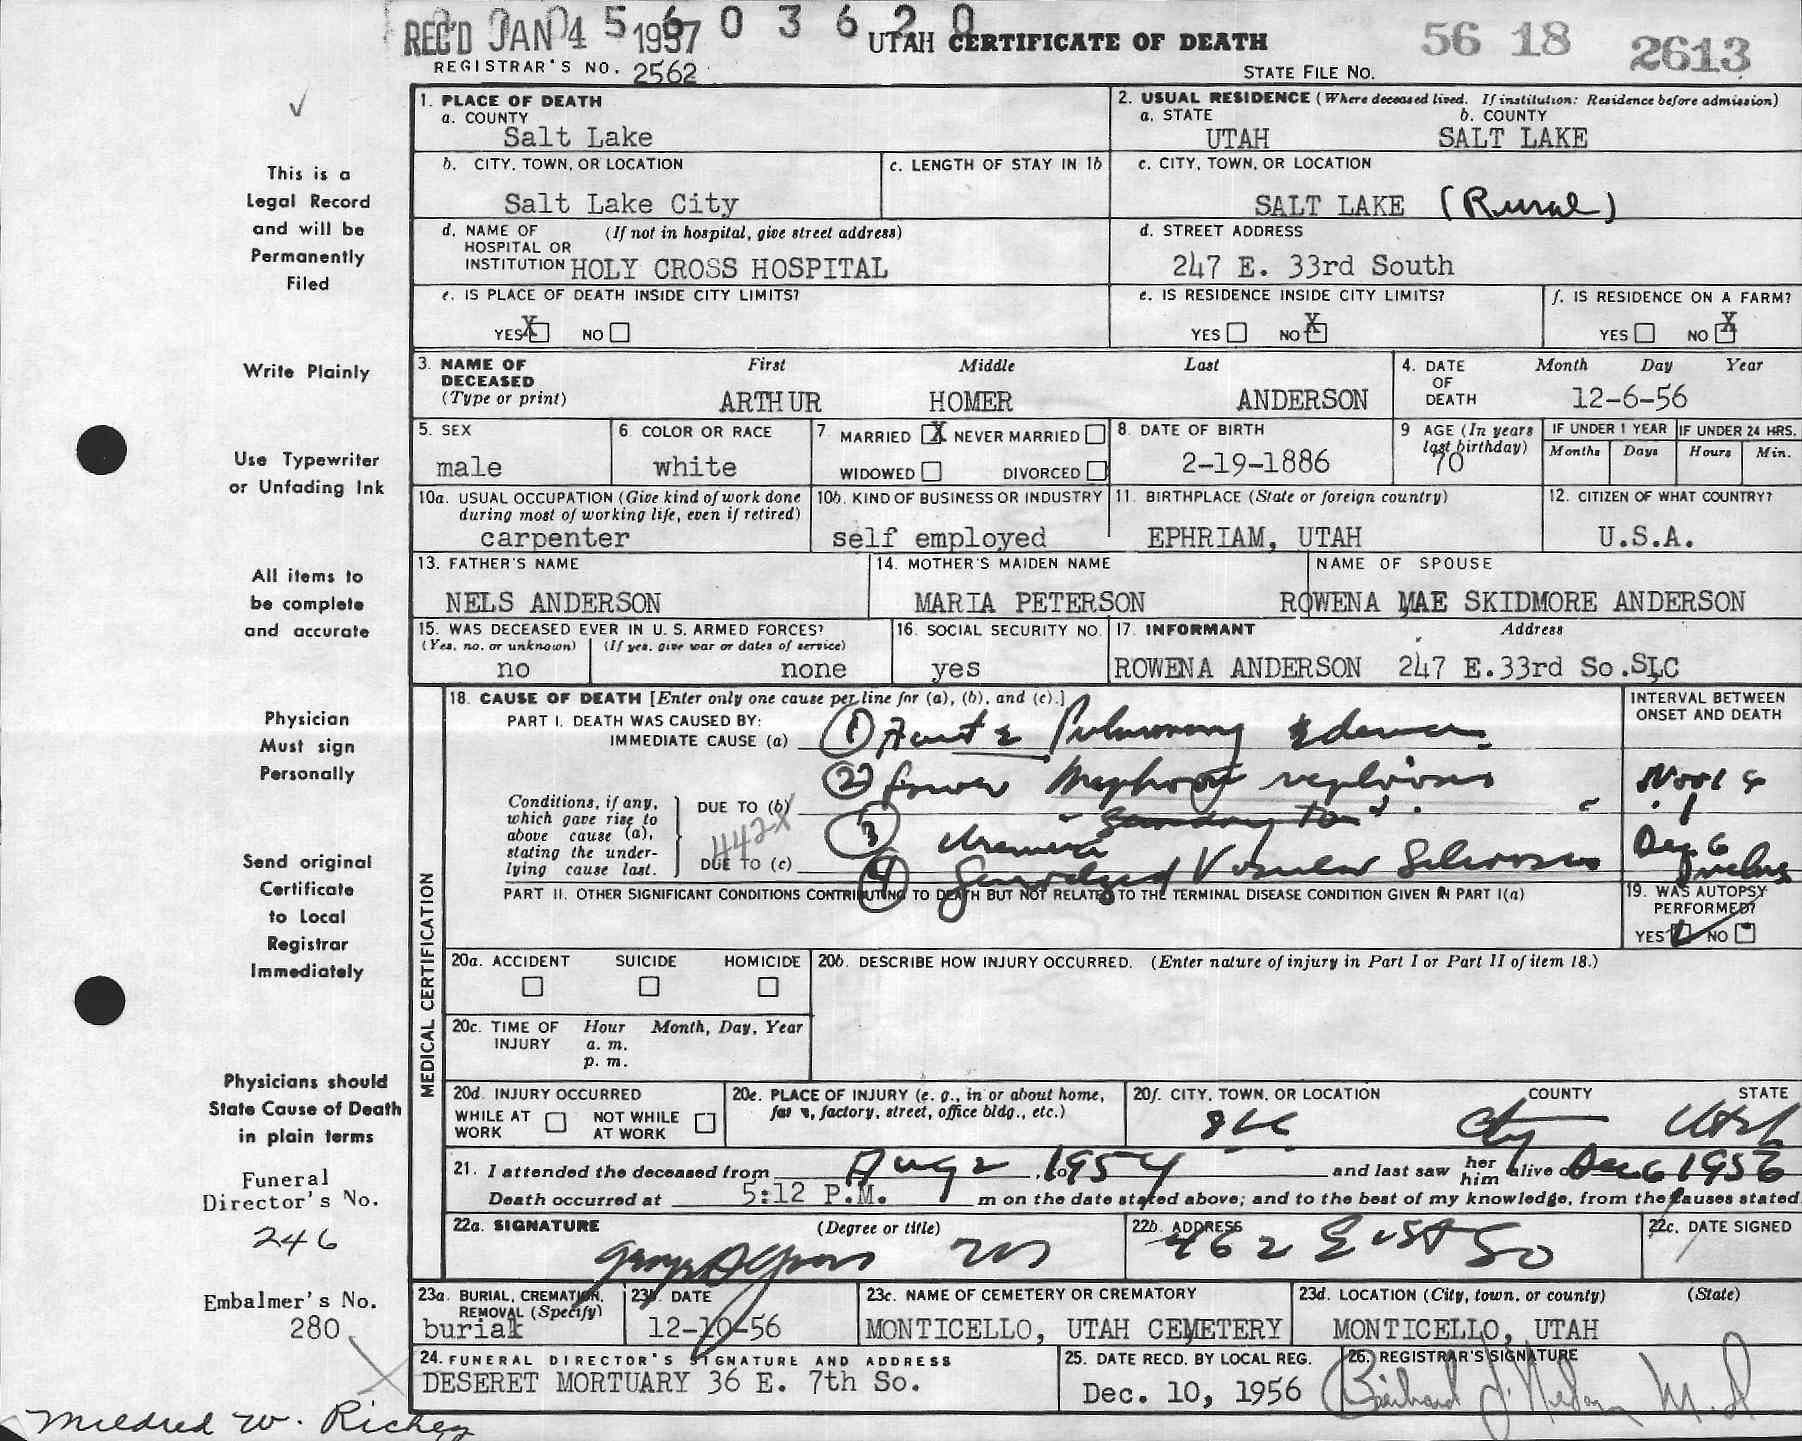 REC'D JAN 4 1957
5 6 0 3 6 2 0
UTAH CERTIFICATE OF DEATH
56 18 2613
REGISTRAR'S NO. 2562
STATE FILE NO.
This is a
Legal Record
and will be
Permanently
Filed
Write Plainly
Use Typewriter
or Unfading Ink
All items to
be complete
and accurate
Physician
Must sign
Personally
Send original
Certificate
to Local
Registrar
Immediately
Physicians should
State Cause of Death
in plain terms
Funeral
Director's No.
246
Embalmer's No.
280
1. PLACE OF DEATH
a. COUNTY
Salt Lake
2. USUAL RESIDENCE (Where deceased lived. If institution: Residence before admission)
a. STATE b. COUNTY
UTAH SALT LAKE
b. CITY, TOWN, OR LOCATION
Salt Lake City
c. LENGTH OF STAY IN 1b
c. CITY, TOWN, OR LOCATION
SALT LAKE (Rural)
d. NAME OF (If not in hospital, give street address)
HOSPITAL OR
INSTITUTION HOLY CROSS HOSPITAL
d. STREET ADDRESS
247 E. 33rd South
e. IS PLACE OF DEATH INSIDE CITY LIMITS?
YES X NO
e. IS RESIDENCE INSIDE CITY LIMITS?
YES NO X
f. IS RESIDENCE ON A FARM?
YES NO X
3. NAME OF DECEASED (Type or print)
First Middle Last
ARTHUR HOMER ANDERSON
4. DATE OF DEATH Month Day Year
12-6-56
5. SEX
male
6. COLOR OR RACE
white
7. MARRIED X NEVER MARRIED
WIDOWED DIVORCED
8. DATE OF BIRTH
2-19-1886
9 AGE (In years last birthday)
70
IF UNDER 1 YEAR IF UNDER 24 HRS.
Months Days Hours Min.
10a. USUAL OCCUPATION (Give kind of work done
during most of working life, even if retired)
carpenter
10b. KIND OF BUSINESS OR INDUSTRY
self employed
11. BIRTHPLACE (State or foreign country)
EPHRIAM, UTAH
12. CITIZEN OF WHAT COUNTRY?
U.S.A.
13. FATHER'S NAME
NELS ANDERSON
14. MOTHER'S MAIDEN NAME
MARIA PETERSON
NAME OF SPOUSE
ROWENA MAE SKIDMORE ANDERSON
15. WAS DECEASED EVER IN U. S. ARMED FORCES?
(Yes, no, or unknown) (If yes, give war or dates of service)
no none
16. SOCIAL SECURITY NO.
yes
17. INFORMANT Address
ROWENA ANDERSON 247 E.33rd So.SLC
MEDICAL CERTIFICATION
18. CAUSE OF DEATH [Enter only one cause per line for (a), (b), and (c).]
PART I. DEATH WAS CAUSED BY:
IMMEDIATE CAUSE (a) (1) Acute Pulmonary Edema
(2) Lower Nephron nephrosis
Conditions, if any,
which gave rise to
above cause (a),
stating the under-
lying cause last.
DUE TO (b)
Secondary to
442X
(3) Uremia
DUE TO (c)
(4) Generalized Vascular Sclerosis
INTERVAL BETWEEN
ONSET AND DEATH
Dec 6
PART II. OTHER SIGNIFICANT CONDITIONS CONTRIBUTING TO DEATH BUT NOT RELATED TO THE TERMINAL DISEASE CONDITION GIVEN IN PART I(a)
19. WAS AUTOPSY
PERFORMED?
YES NO
20a. ACCIDENT SUICIDE HOMICIDE
20b. DESCRIBE HOW INJURY OCCURRED. (Enter nature of injury in Part I or Part II of item 18.)
20c. TIME OF INJURY Hour Month, Day, Year
a. m.
p. m.
20d. INJURY OCCURRED
WHILE AT WORK NOT WHILE AT WORK
20e. PLACE OF INJURY (e. g., in or about home,
farm, factory, street, office bldg., etc.)
20f. CITY, TOWN, OR LOCATION COUNTY STATE
SLC City Utah
21. I attended the deceased from Aug 2 1954 to and last saw her him alive on Dec 6 1956
Death occurred at 5:12 P.M. m on the date stated above; and to the best of my knowledge, from the causes stated.
22a. SIGNATURE (Degree or title)
22b. ADDRESS
462 East So
22c. DATE SIGNED
23a. BURIAL, CREMATION, REMOVAL (Specify)
burial
23b. DATE
12-10-56
23c. NAME OF CEMETERY OR CREMATORY
MONTICELLO, UTAH CEMETERY
23d. LOCATION (City, town, or county) (State)
MONTICELLO, UTAH
24. FUNERAL DIRECTOR'S SIGNATURE AND ADDRESS
DESERET MORTUARY 36 E. 7th So.
25. DATE RECD. BY LOCAL REG.
Dec. 10, 1956
26. REGISTRAR'S SIGNATURE
Mildred W. Richey